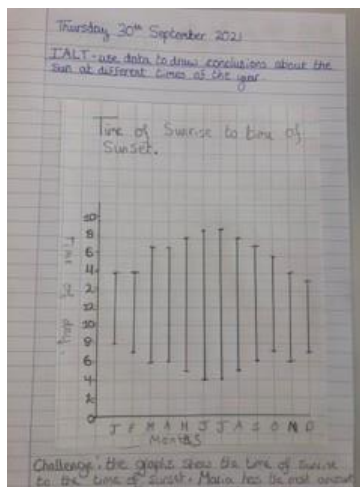 Thursday 30th September 2021
IALT - use data to draw conclusions about the
sun at different times of the year
Time of Sunrise to time of
Sunset.
10
8
6
4
2
12
10
8
6
4
2
0
Time of day.
J F M A M J J A S O N D
Months
Challenge: the graphs show the time of sunrise
to the time of sunset. Maria has the most amount